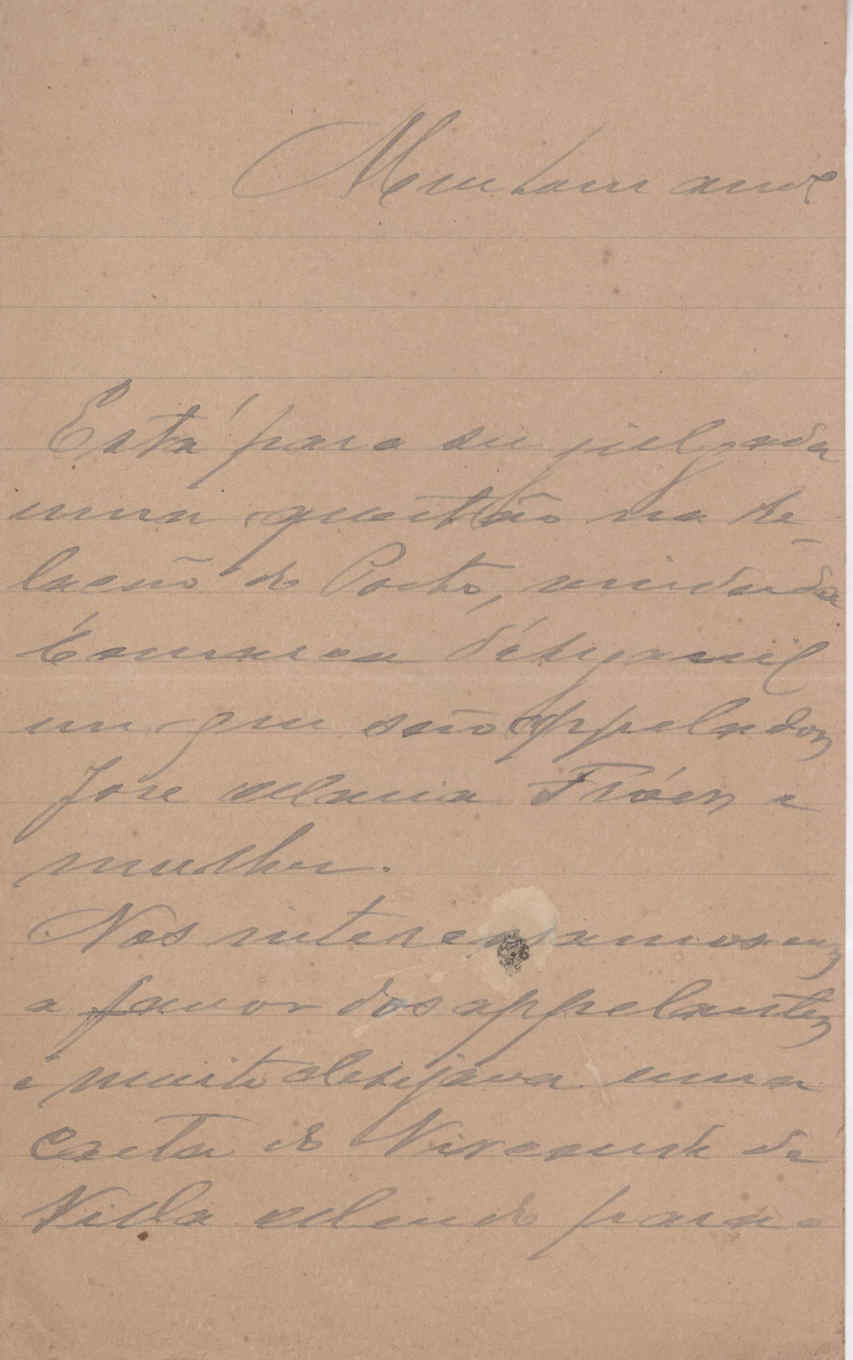 Meu bom am.º
Está para ser julgada
uma questão na Re-
lação do Porto, vinda da
Comarca d'Arganil
em que são appelados
José Maria Fróes e
mulher.
Nos interessamos
a favor dos appelantes
e muito desejava uma
carta do Visconde de
Villa Mendo para o